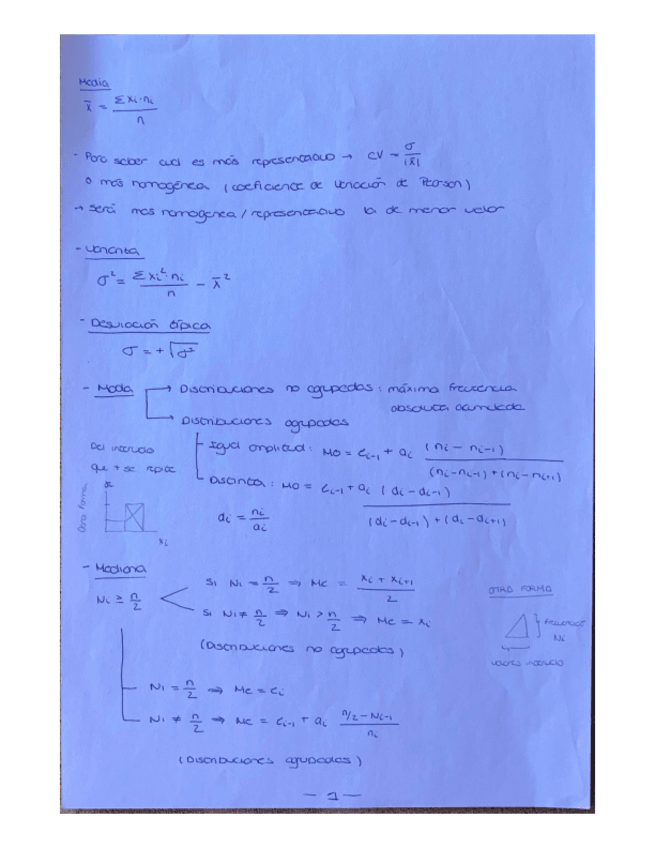 Media
x̄ = Σ xi·ni / n
- Para saber cual es más representativo → CV = σ / |x̄|
o más homogénea (coeficiente de variación de Pearson)
→ será mas homogenea / representativo la de menor valor
- Varianta
σ² = Σ xi²·ni / n − x̄²
- Desviación típica
σ = + √σ²
- Moda → Distribuciones no agrupadas: máxima frecuencia
absoluta acumulada
→ Distribuciones agrupadas
Del intervalo
que + se repite
Igual amplitud: Mo = ei-1 + ai (ni − ni-1) / (ni−ni-1) + (ni − ni+1)
Distinta: Mo = ei-1 + ai (di − di-1) / (di − di-1) + (di − di+1)
Otra forma
xi
di = ni / ai
- Mediana
Ni ≥ n/2
Si Ni = n/2 ⇒ Me = xi + xi+1 / 2
Si Ni ≠ n/2 ⇒ Ni > n/2 ⇒ Me = xi
(Distribuciones no agrupadas)
OTRA FORMA
frecuencia
Ni
valores intervalo
Ni = n/2 ⇒ Me = ei
Ni ≠ n/2 ⇒ Me = ei-1 + ai n/2 − Ni-1 / ni
(Distribuciones agrupadas)
— 1 —